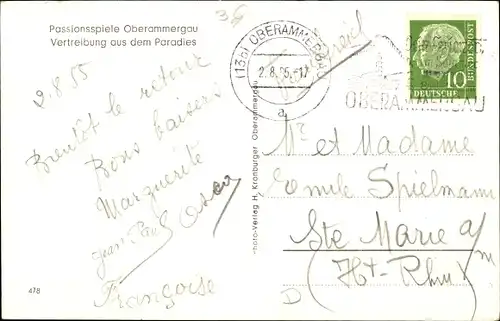 Passionsspiele Oberammergau
Vertreibung aus dem Paradies
36
2.8.55
Bientôt le retour
Bons baisers
Marguerite
Oscar
Jean Paul
Françoise
478
Photo-Verlag H. Kronburger Oberammergau
(13b) OBERAMMERGAU
2.8.55.-17
a
Frankreich
OBERAMMERGAU
10
DEUTSCHE BUNDESPOST
Mr et Madame
Emile Spielmann
Ste Marie a/m
(Ht-Rhin)
D